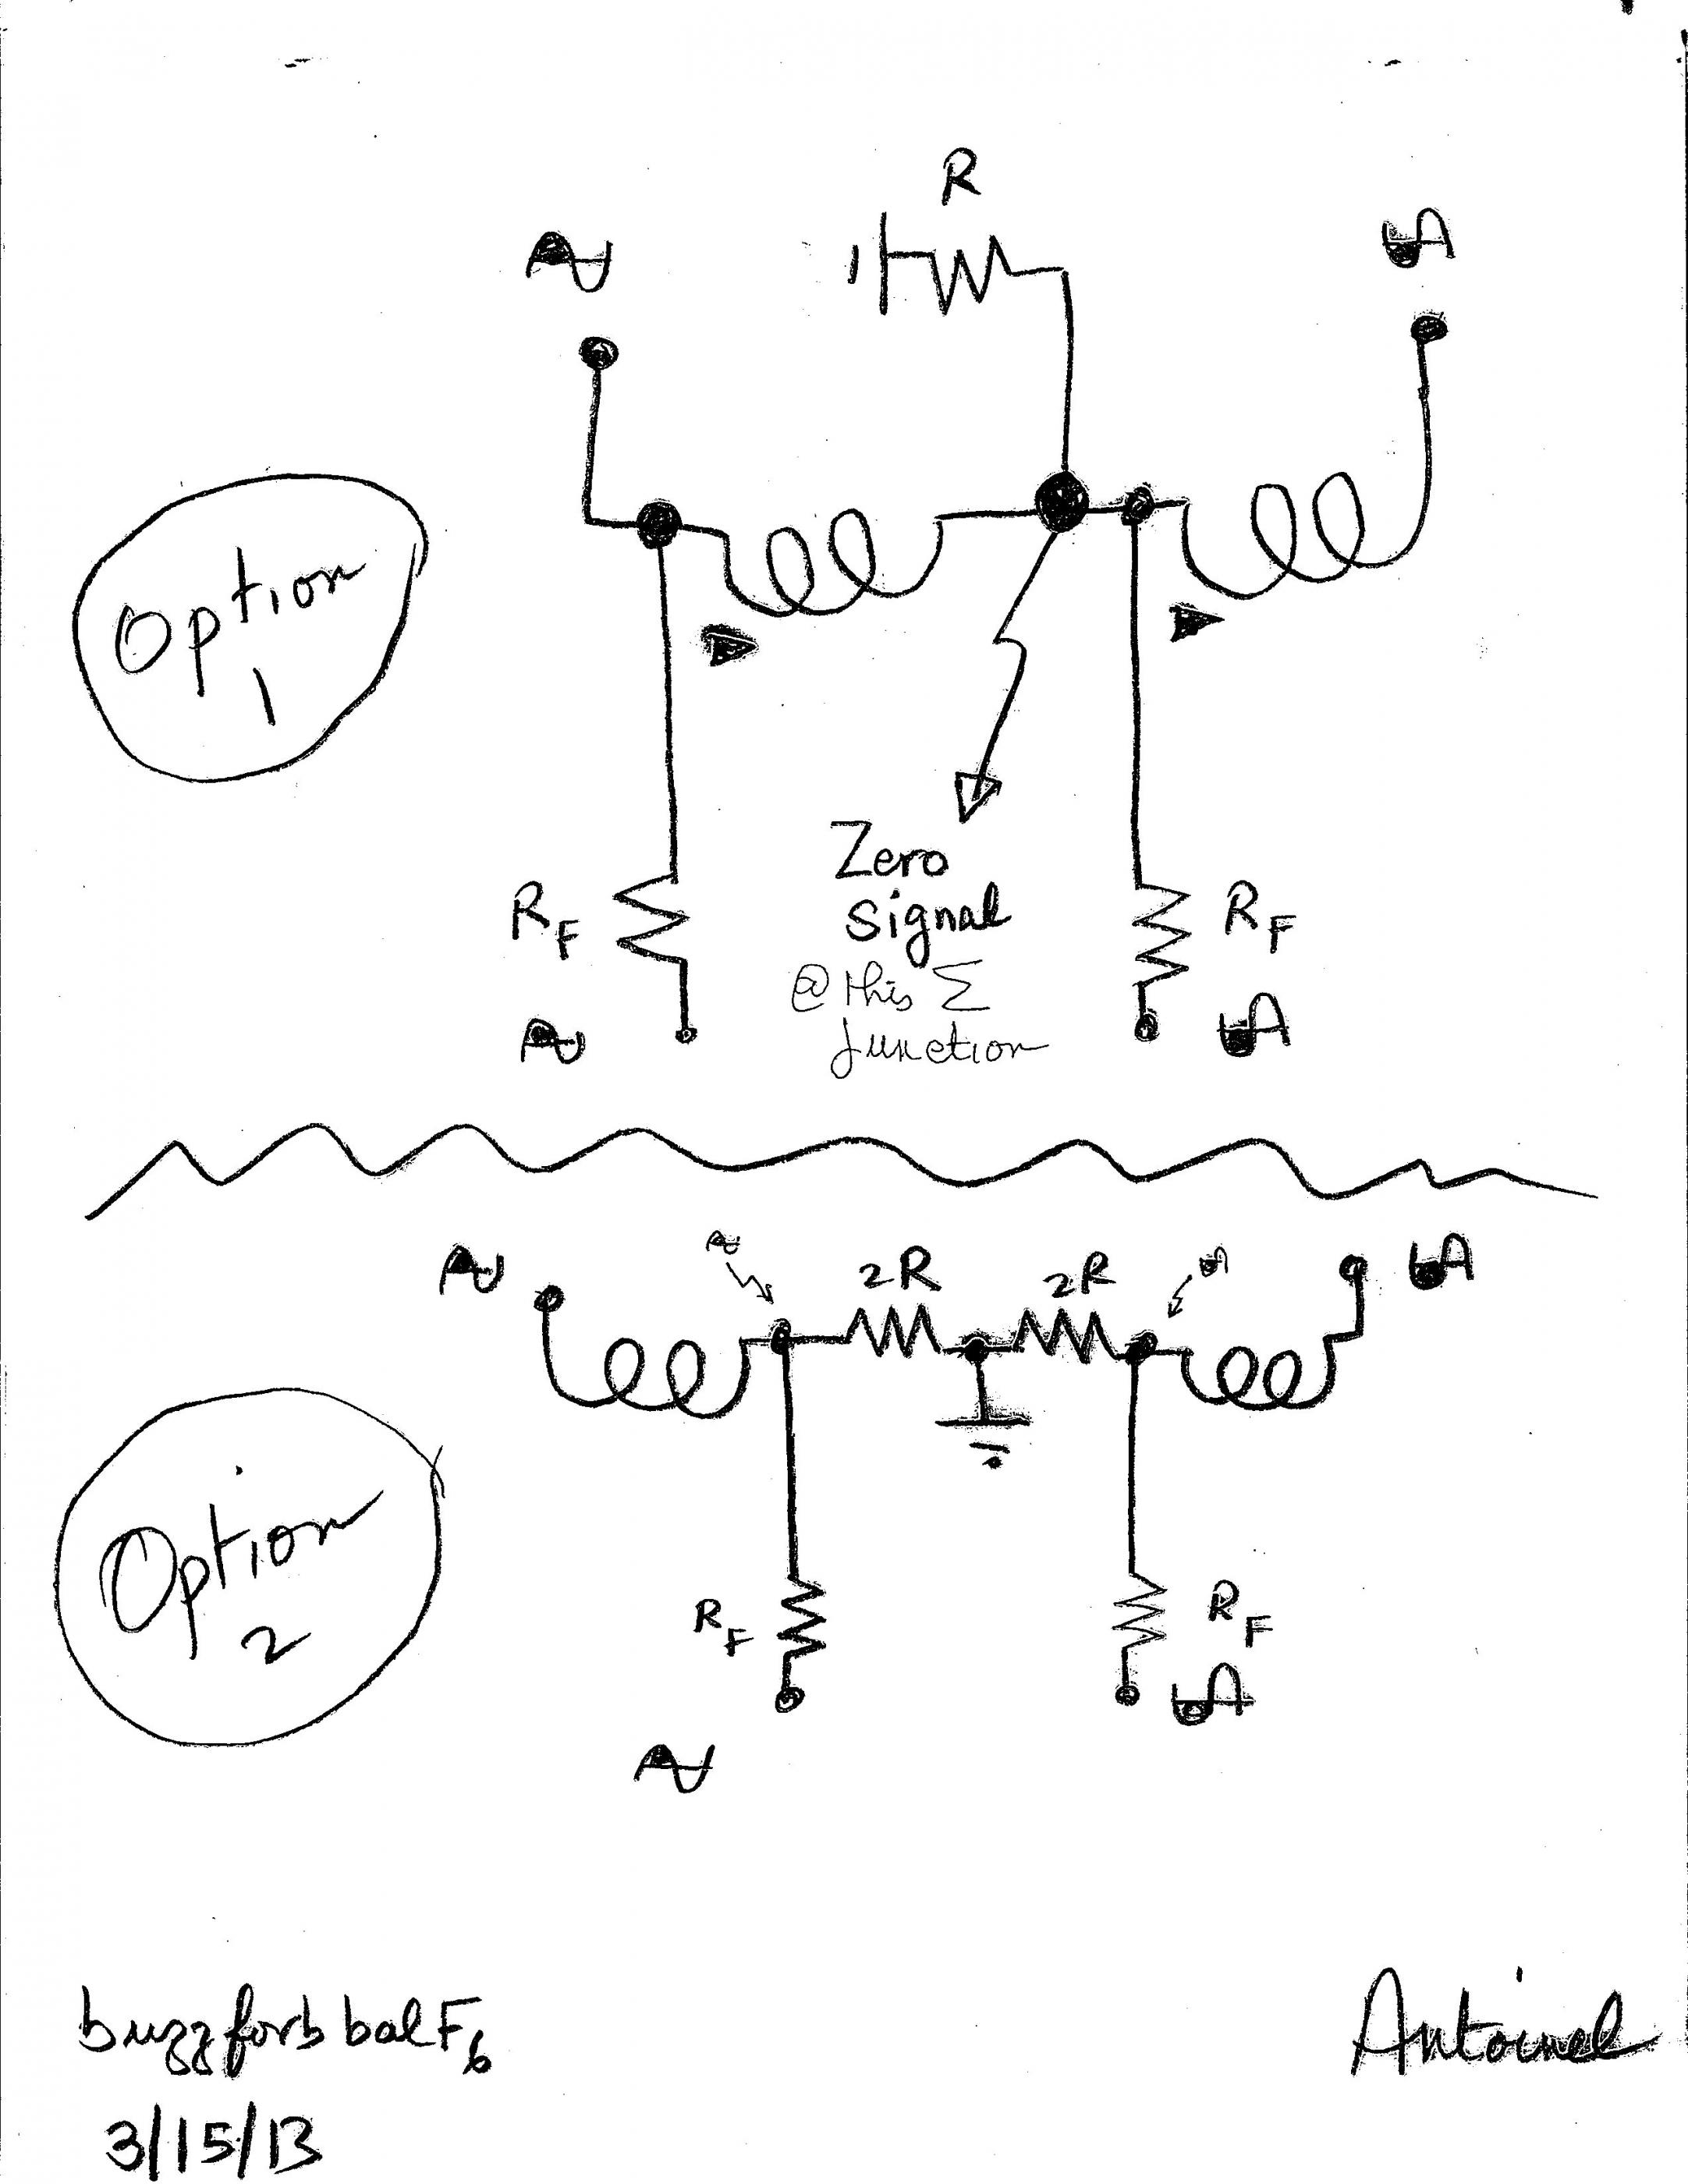 R
Option
1
Zero
signal
@ this Σ
junction
R_F
R_F
2R
2R
Option
2
R_F
R_F
buzzforb balF6
3/15/13
Antoinel